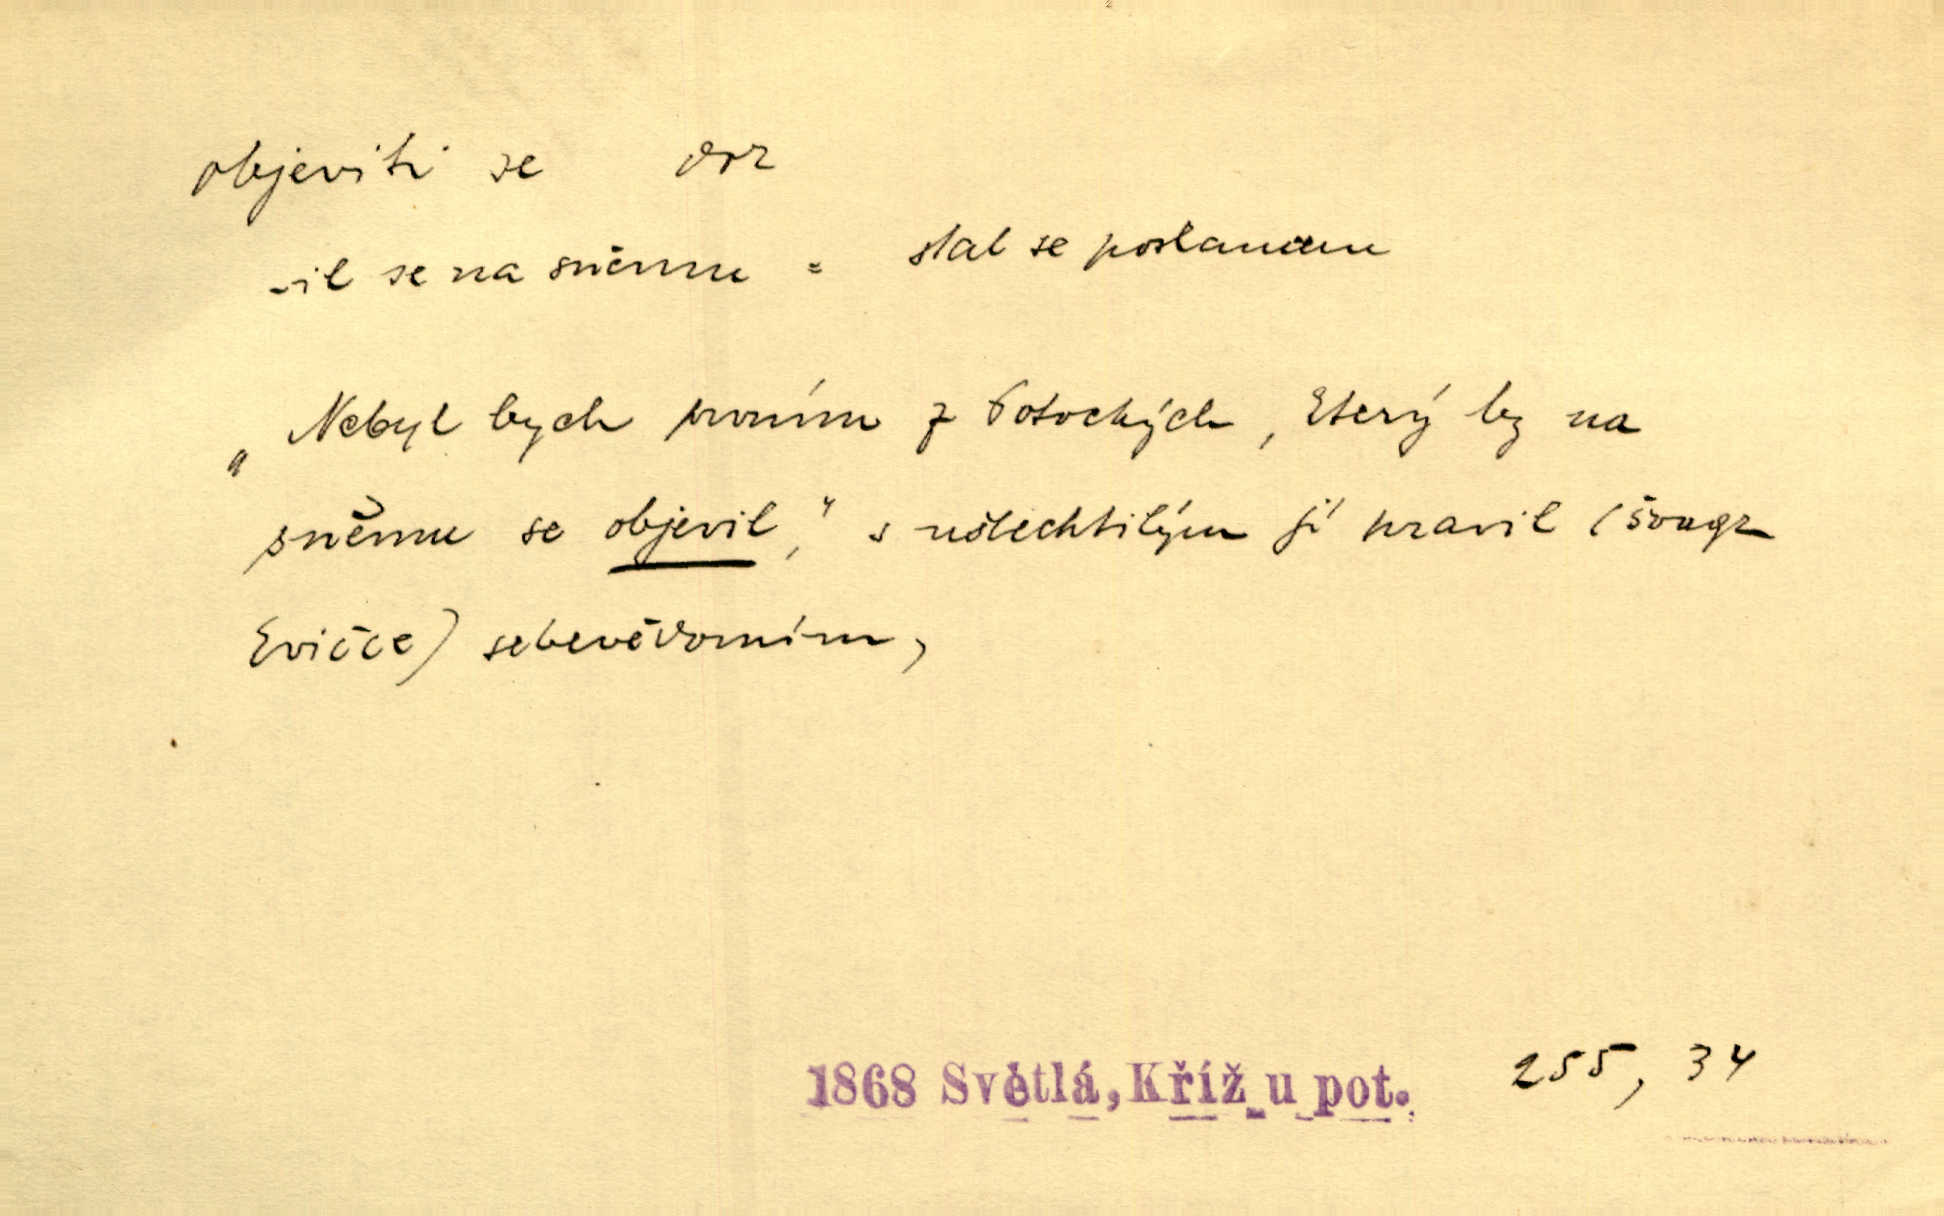 objeviti se dok
-il se na sněmu = stal se poslancem
„Nebyl bych prvním z Potockých, který by na
sněmu se objevil," s ušlechtilým jí pravil (švagr
Evičce) sebevědomím,
1868 Světlá, Kříž u pot. 255, 34